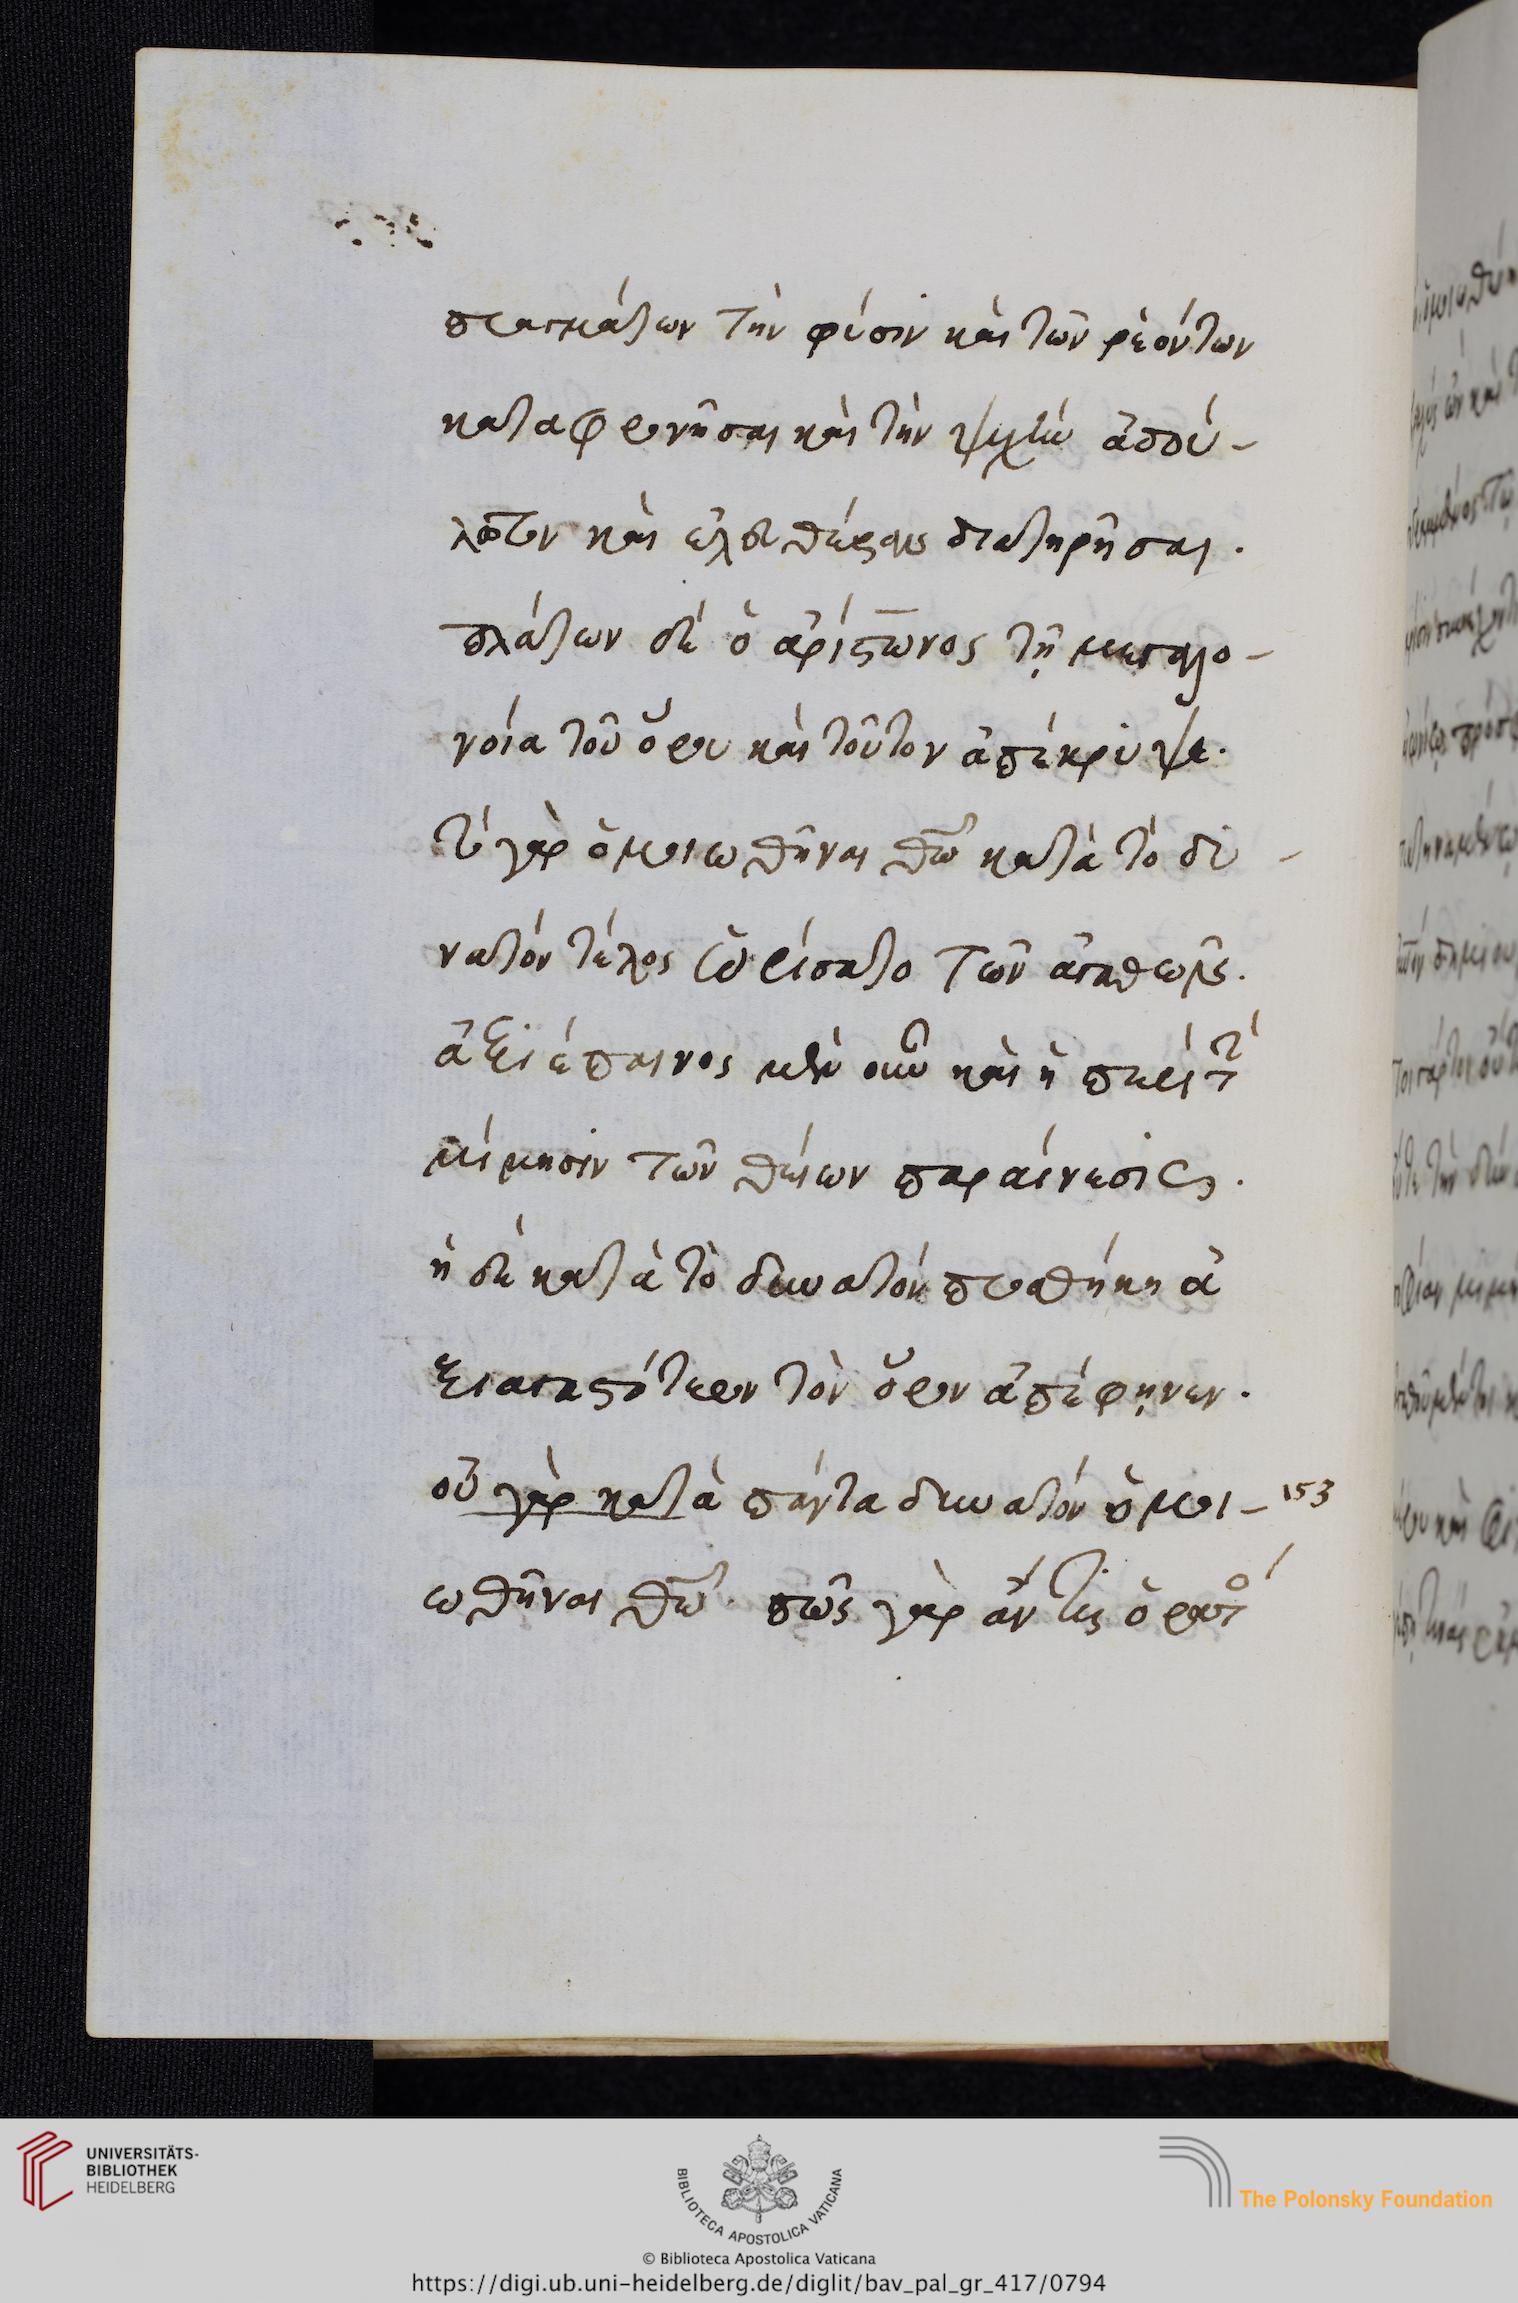 πραγμάτων τὴν φύσιν καὶ τῶν ῥεόντων
καταφρονῆσαι καὶ τὴν ψυχὴν ἀδού-
λωτον καὶ ἐλευθέραν διατηρῆσαι.
πλάτων δὲ ὁ ἀρίστωνος τῇ μεγαλο-
νοία τοῦ ὅρου καὶ τοῦτον ἀπέκρυψε.
τὸ γὰρ ὁμοιωθῆναι θῶ κατὰ τὸ δυ-
νατὸν τέλος ὡρίσατο τῶν ἀγαθῶν.
ἀξιέπαινος μὲν οὖν καὶ ἡ περὶ τ
μίμησιν τῶν θείων παραίνεσις.
ἡ δὲ κατὰ τὸ δυνατὸν προσθήκη ἀ
ξιαγαστότερον τὸν ὅρον ἀπέφηνεν.
οὐ γὰρ κατὰ πάντα δυνατὸν ὁμοι- 153
ωθῆναι θῶ. πῶς γὰρ ἄν τις ὁρατ
UNIVERSITÄTS-
BIBLIOTHEK
HEIDELBERG
BIBLIOTECA APOSTOLICA VATICANA
The Polonsky Foundation
© Biblioteca Apostolica Vaticana
https://digi.ub.uni-heidelberg.de/diglit/bav_pal_gr_417/0794